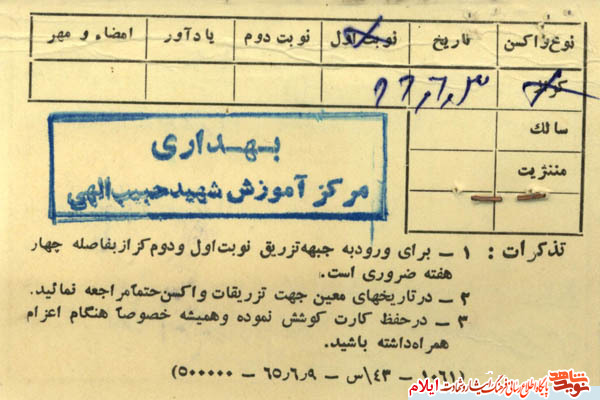 نوع واکسن تاریخ نوبت اول نوبت دوم یادآور امضاء و مهر
سالک
مننژیت
بهداری
مرکز آموزش شهید حبیب الهی
تذکرات : ۱ – برای ورود به جبهه تزریق نوبت اول و دوم کزاز بفاصله چهار
هفته ضروری است.
۲ – در تاریخهای معین جهت تزریقات واکسن حتماً مراجعه نمائید.
۳ – در حفظ کارت کوشش نموده و همیشه خصوصاً هنگام اعزام
همراه داشته باشید.
(۱۰۶۱ – ۴۳\س – ۶۵٫۶٫۹ – ۵۰۰۰۰۰)
نوید شاهد
پایگاه اطلاع رسانی فرهنگ ایثار و شهادت ایلام